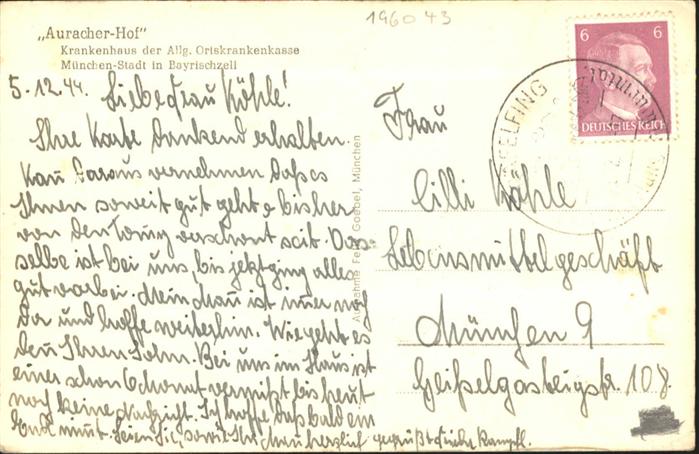 196043
„Auracher-Hof"
Krankenhaus der Allg. Ortskrankenkasse
München-Stadt in Bayrischzell
5.12.44. Liebe Frau Köhle!
Ihre Karte dankend erhalten.
Kan daraus vernehmen daß es
Ihnen soweit gut geht u bisher
von den verschont seit. Das-
selbe ist bei uns, bis jetzt ging alles
gut vorbei. Mein Man ist imer noch
da und hoffe weiterhin. Wie geht es
den Ihren Sohn. Bei uns im Haus ist
einer schon 6 Monat vermißt bis heut
noch keine Nachricht. Ich hoffe daß bald ein
End nimt. Seien Sie, sowie Ihr Man herzlich gegrüßt Kampfl.
Aufnahme Goebel, München
6 6
DEUTSCHES REICH
Frau
Cilli Köhle
Lebensmittelgeschäft
München 9
Geiselgasteigstr. 108.